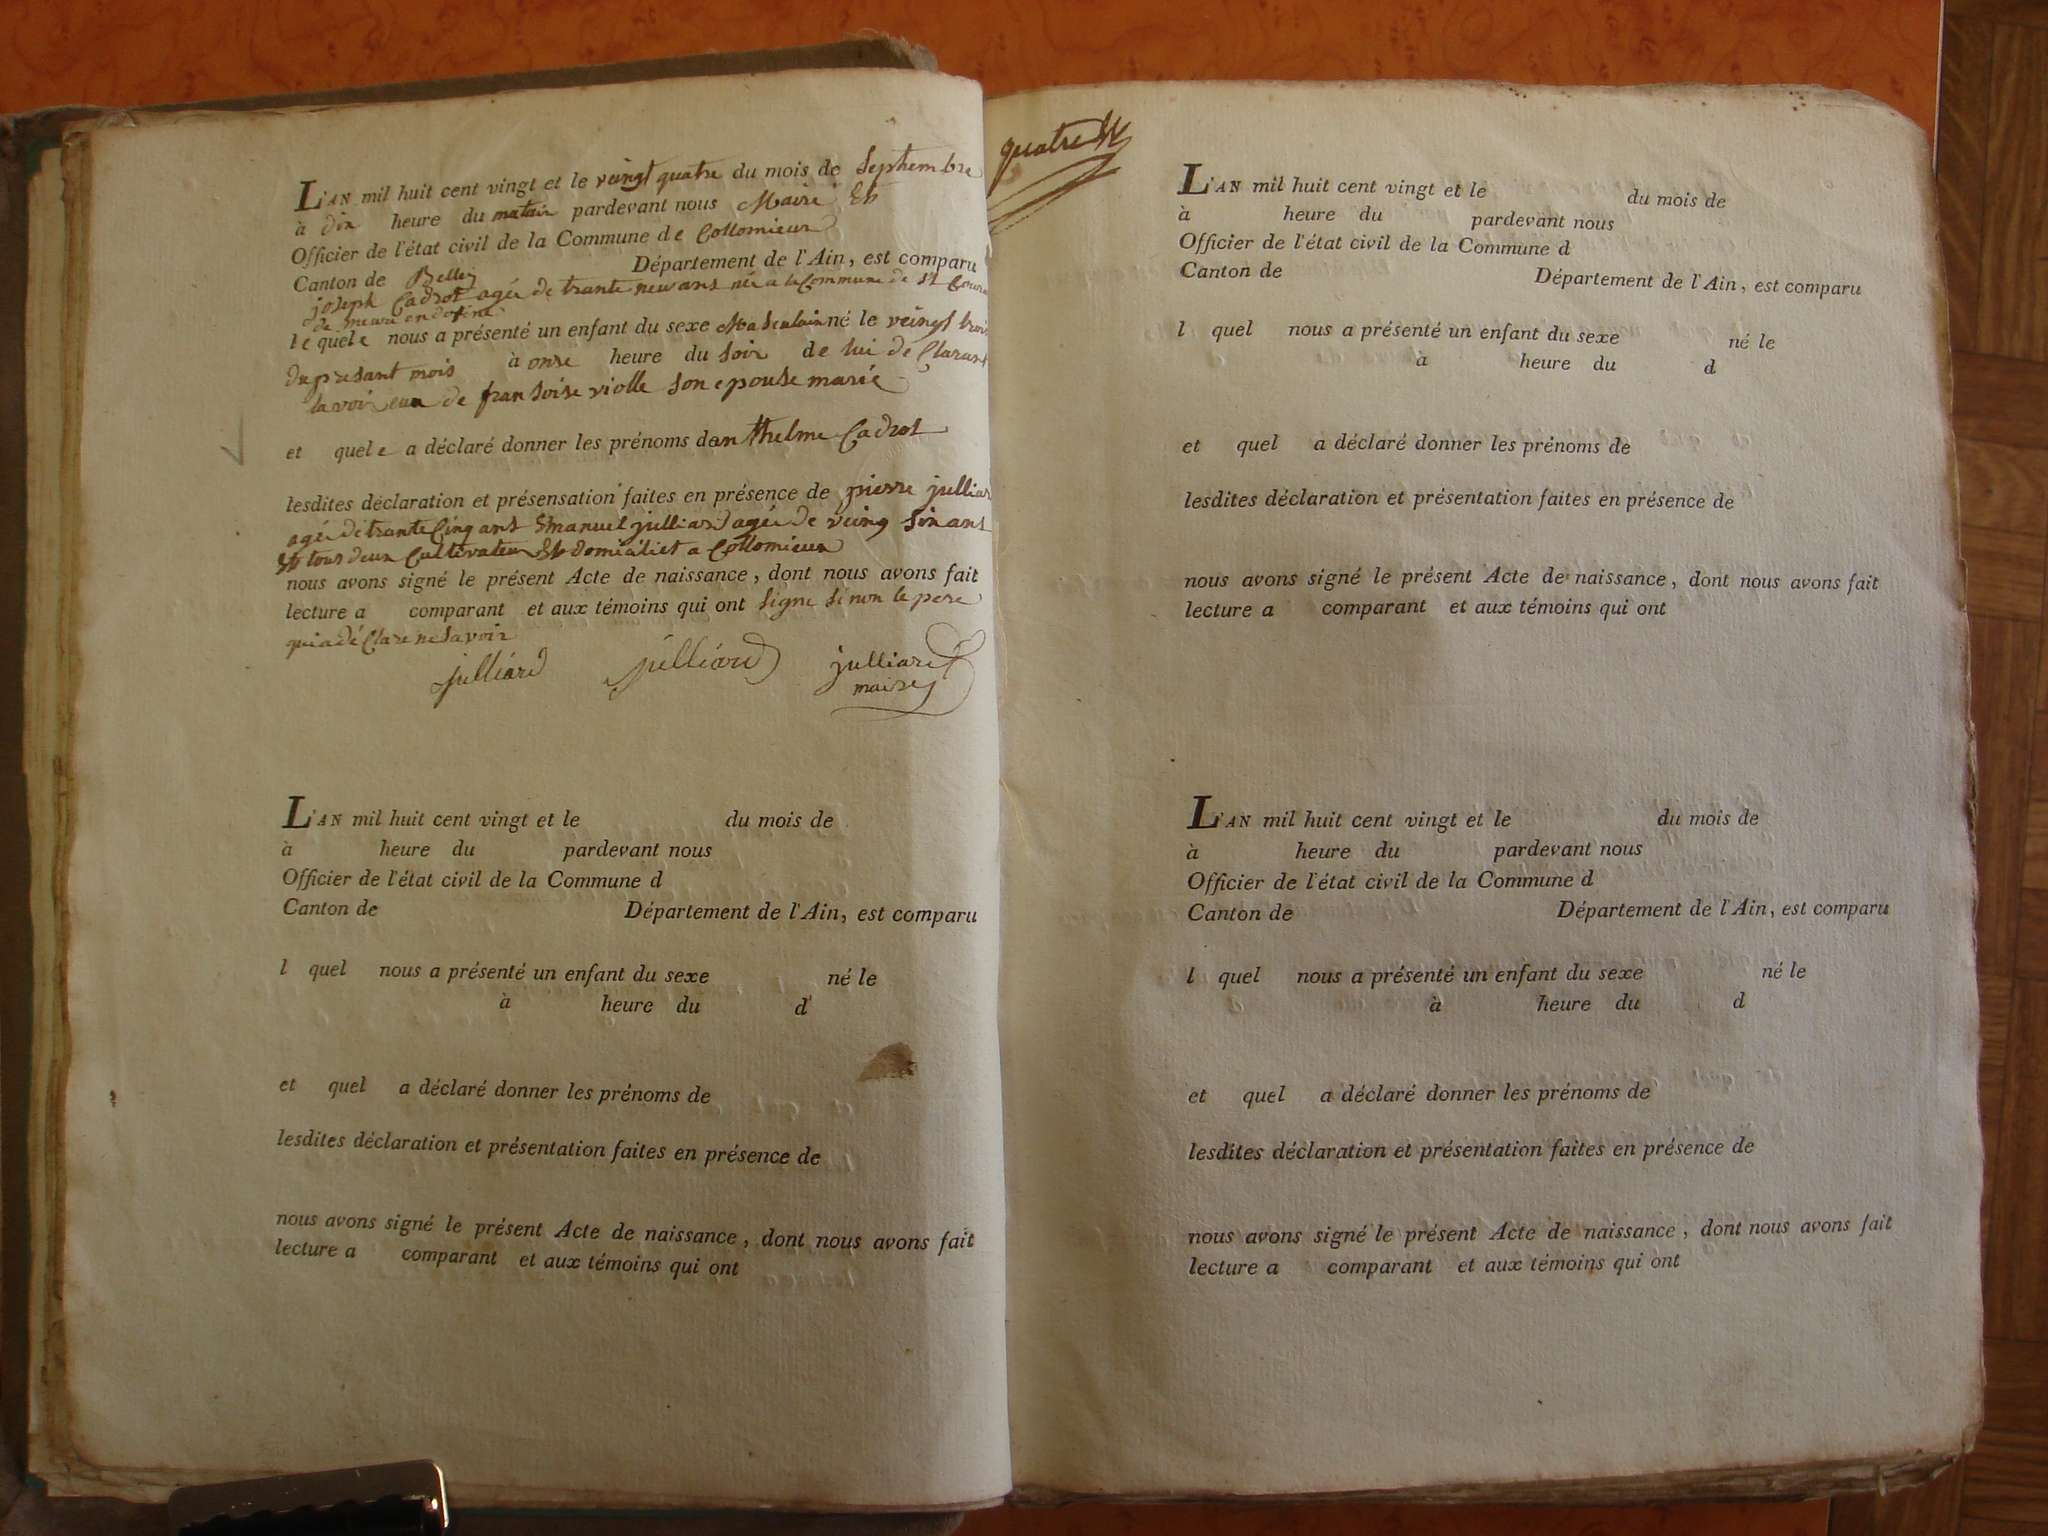 L'AN mil huit cent vingt et le veingt quatre du mois de Septembre
à dix heure du matain pardevant nous Maire Et
Officier de l'état civil de la Commune de Collomieux
Canton de Belley Département de l'Ain, est comparu
joseph Cadrot agée de trante neuv ans née a la Commune de St
de
le quele nous a présenté un enfant du sexe Masculain né le veingt trois
du presant mois à onse heure du soir de lui de Clarant
de fransoise violle son epouse marié
et quele a déclaré donner les prénoms danthelme Cadrot
lesdites déclaration et présensation faites en présence de pierre julliar
agée de trante Cinq ans Emanuel julliard agée de veing six ans
Et tous deux Cultivateur Et domiciliet a Collomieux
nous avons signé le présent Acte de naissance, dont nous avons fait
lecture a comparant et aux témoins qui ont signe sinon le pere
qui a déClare ne savoir
julliard julliard julliard
maire
L'AN mil huit cent vingt et le du mois de
à heure du pardevant nous
Officier de l'état civil de la Commune d
Canton de Département de l'Ain, est comparu
l quel nous a présenté un enfant du sexe né le
à heure du d
et quel a déclaré donner les prénoms de
lesdites déclaration et présentation faites en présence de
nous avons signé le présent Acte de naissance, dont nous avons fait
lecture a comparant et aux témoins qui ont
quatre
L'AN mil huit cent vingt et le du mois de
à heure du pardevant nous
Officier de l'état civil de la Commune d
Canton de Département de l'Ain, est comparu
l quel nous a présenté un enfant du sexe né le
à heure du d
et quel a déclaré donner les prénoms de
lesdites déclaration et présentation faites en présence de
nous avons signé le présent Acte de naissance, dont nous avons fait
lecture a comparant et aux témoins qui ont
L'AN mil huit cent vingt et le du mois de
à heure du pardevant nous
Officier de l'état civil de la Commune d
Canton de Département de l'Ain, est comparu
l quel nous a présenté un enfant du sexe né le
à heure du d
et quel a déclaré donner les prénoms de
lesdites déclaration et présentation faites en présence de
nous avons signé le présent Acte de naissance, dont nous avons fait
lecture a comparant et aux témoins qui ont